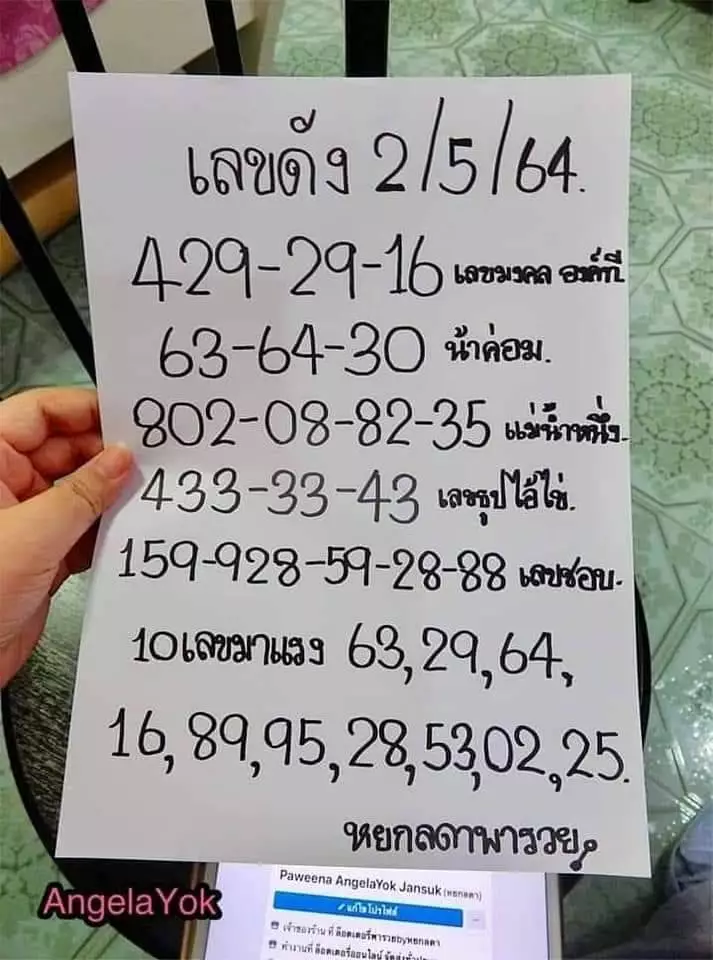 เลขดัง 2/5/64.
429-29-16 เลขมงคล องค์ที่
63-64-30 น้าค่อม.
802-08-82-35 แม่น้ำหนึ่ง.
433-33-43 เลขธูปไอ้ไข่.
159-928-59-28-88 เลขชอบ.
10เลขมาแรง 63,29,64,
16,89,95,28,53,02,25.
หยกลดาพารวย
AngelaYok
Paweena AngelaYok Jansuk (หยกลดา)
แก้ไขโปรไฟล์
เจ้าของร้าน ที่ ล็อตเตอรี่พารวยbyหยกลดา
ทำงานที่ ล็อตเตอรี่ออนไลน์